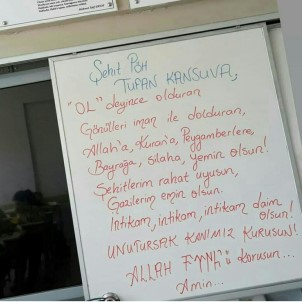 Şehit PÖH
TUFAN KANSUVA,
"OL" deyince olduran
Gönülleri iman ile dolduran,
Allah'a, Kuran'a, Peygambere,
Bayrağa, silaha, yemin olsun!
Şehitlerim rahat uyusun,
Gazilerim emin olsun
İntikam, intikam, intikam daim olsun!
UNUTURSAK KANIMIZ KURUSUN!
ALLAH 'ü Korusun...
Amin...